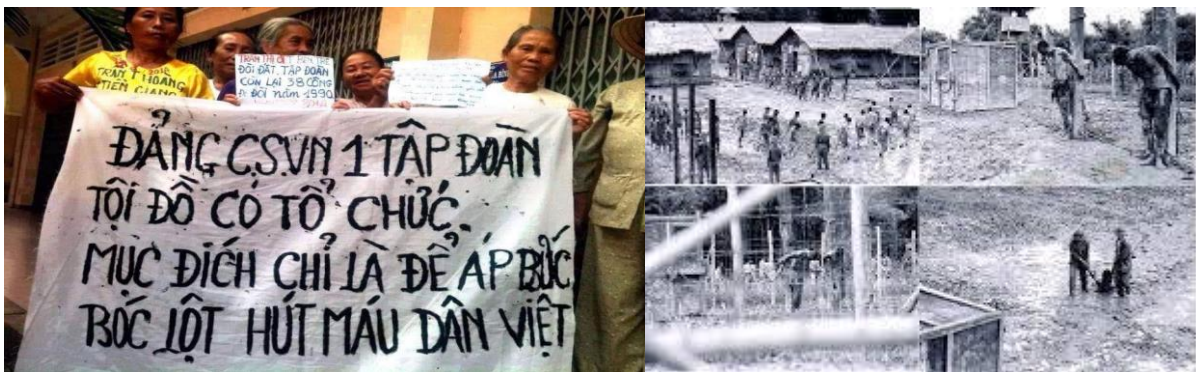 TRAN T HOANG
TIỀN GIANG
TRẦN THỊ
ĐÒI ĐẤT, TẬP ĐOÀN
CÒN LẠI 38 CÔNG
ĐÒI NĂM 1990
ĐẢNG CSVN 1 TẬP ĐOÀN
TỘI ĐỒ CÓ TỔ CHỨC.
MỤC ĐÍCH CHỈ LÀ ĐỂ ÁP BỨC
BÓC LỘT HÚT MÁU DÂN VIỆT